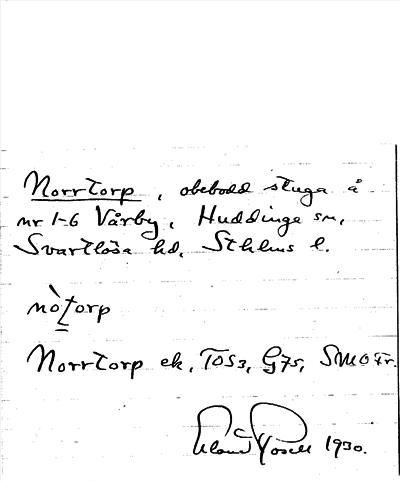 Norrtorp, obebodd stuga å
nr 1-6 Vårby, Huddinge sn,
Svartlösa hd, Sthlms l.
nòtorp
Norrtorp ek, TOS3, G75, SMO
1930.